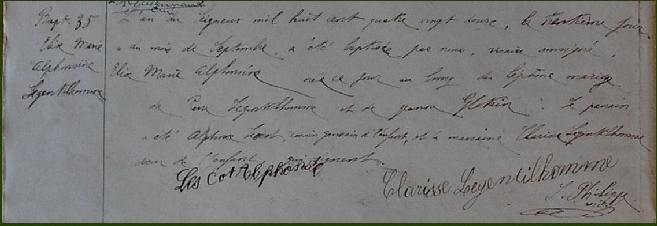 Bapt. 35
Elia Marie
Alphonsine
Legentilhomme
L'an du Seigneur mil huit cent quatre vingt douze, le trentième jour
du mois de Septembre, a été baptisée par nous, vicaire soussigné,
Elia Marie Alphonsine née ce jour du légitime mariage
de Pierre Legentilhomme et de Jeanne Le parrain
a été Alphonse cousin germain de l'enfant, et la marraine Clarisse Legentilhomme
soeur de l'enfant, qui signent.
Alphonse
Clarisse Legentilhomme
J. Philippe
vic.